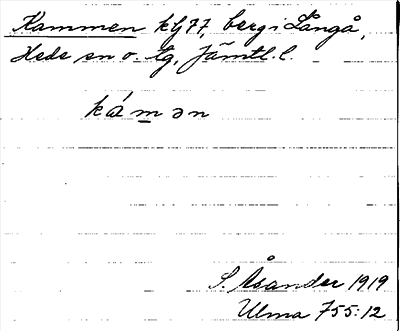 Kammen klj 77, berg i Långå,
Hede sn o. tg, Jämtl. l.
kámən
S. Åsander 1919
Ulma 755:12